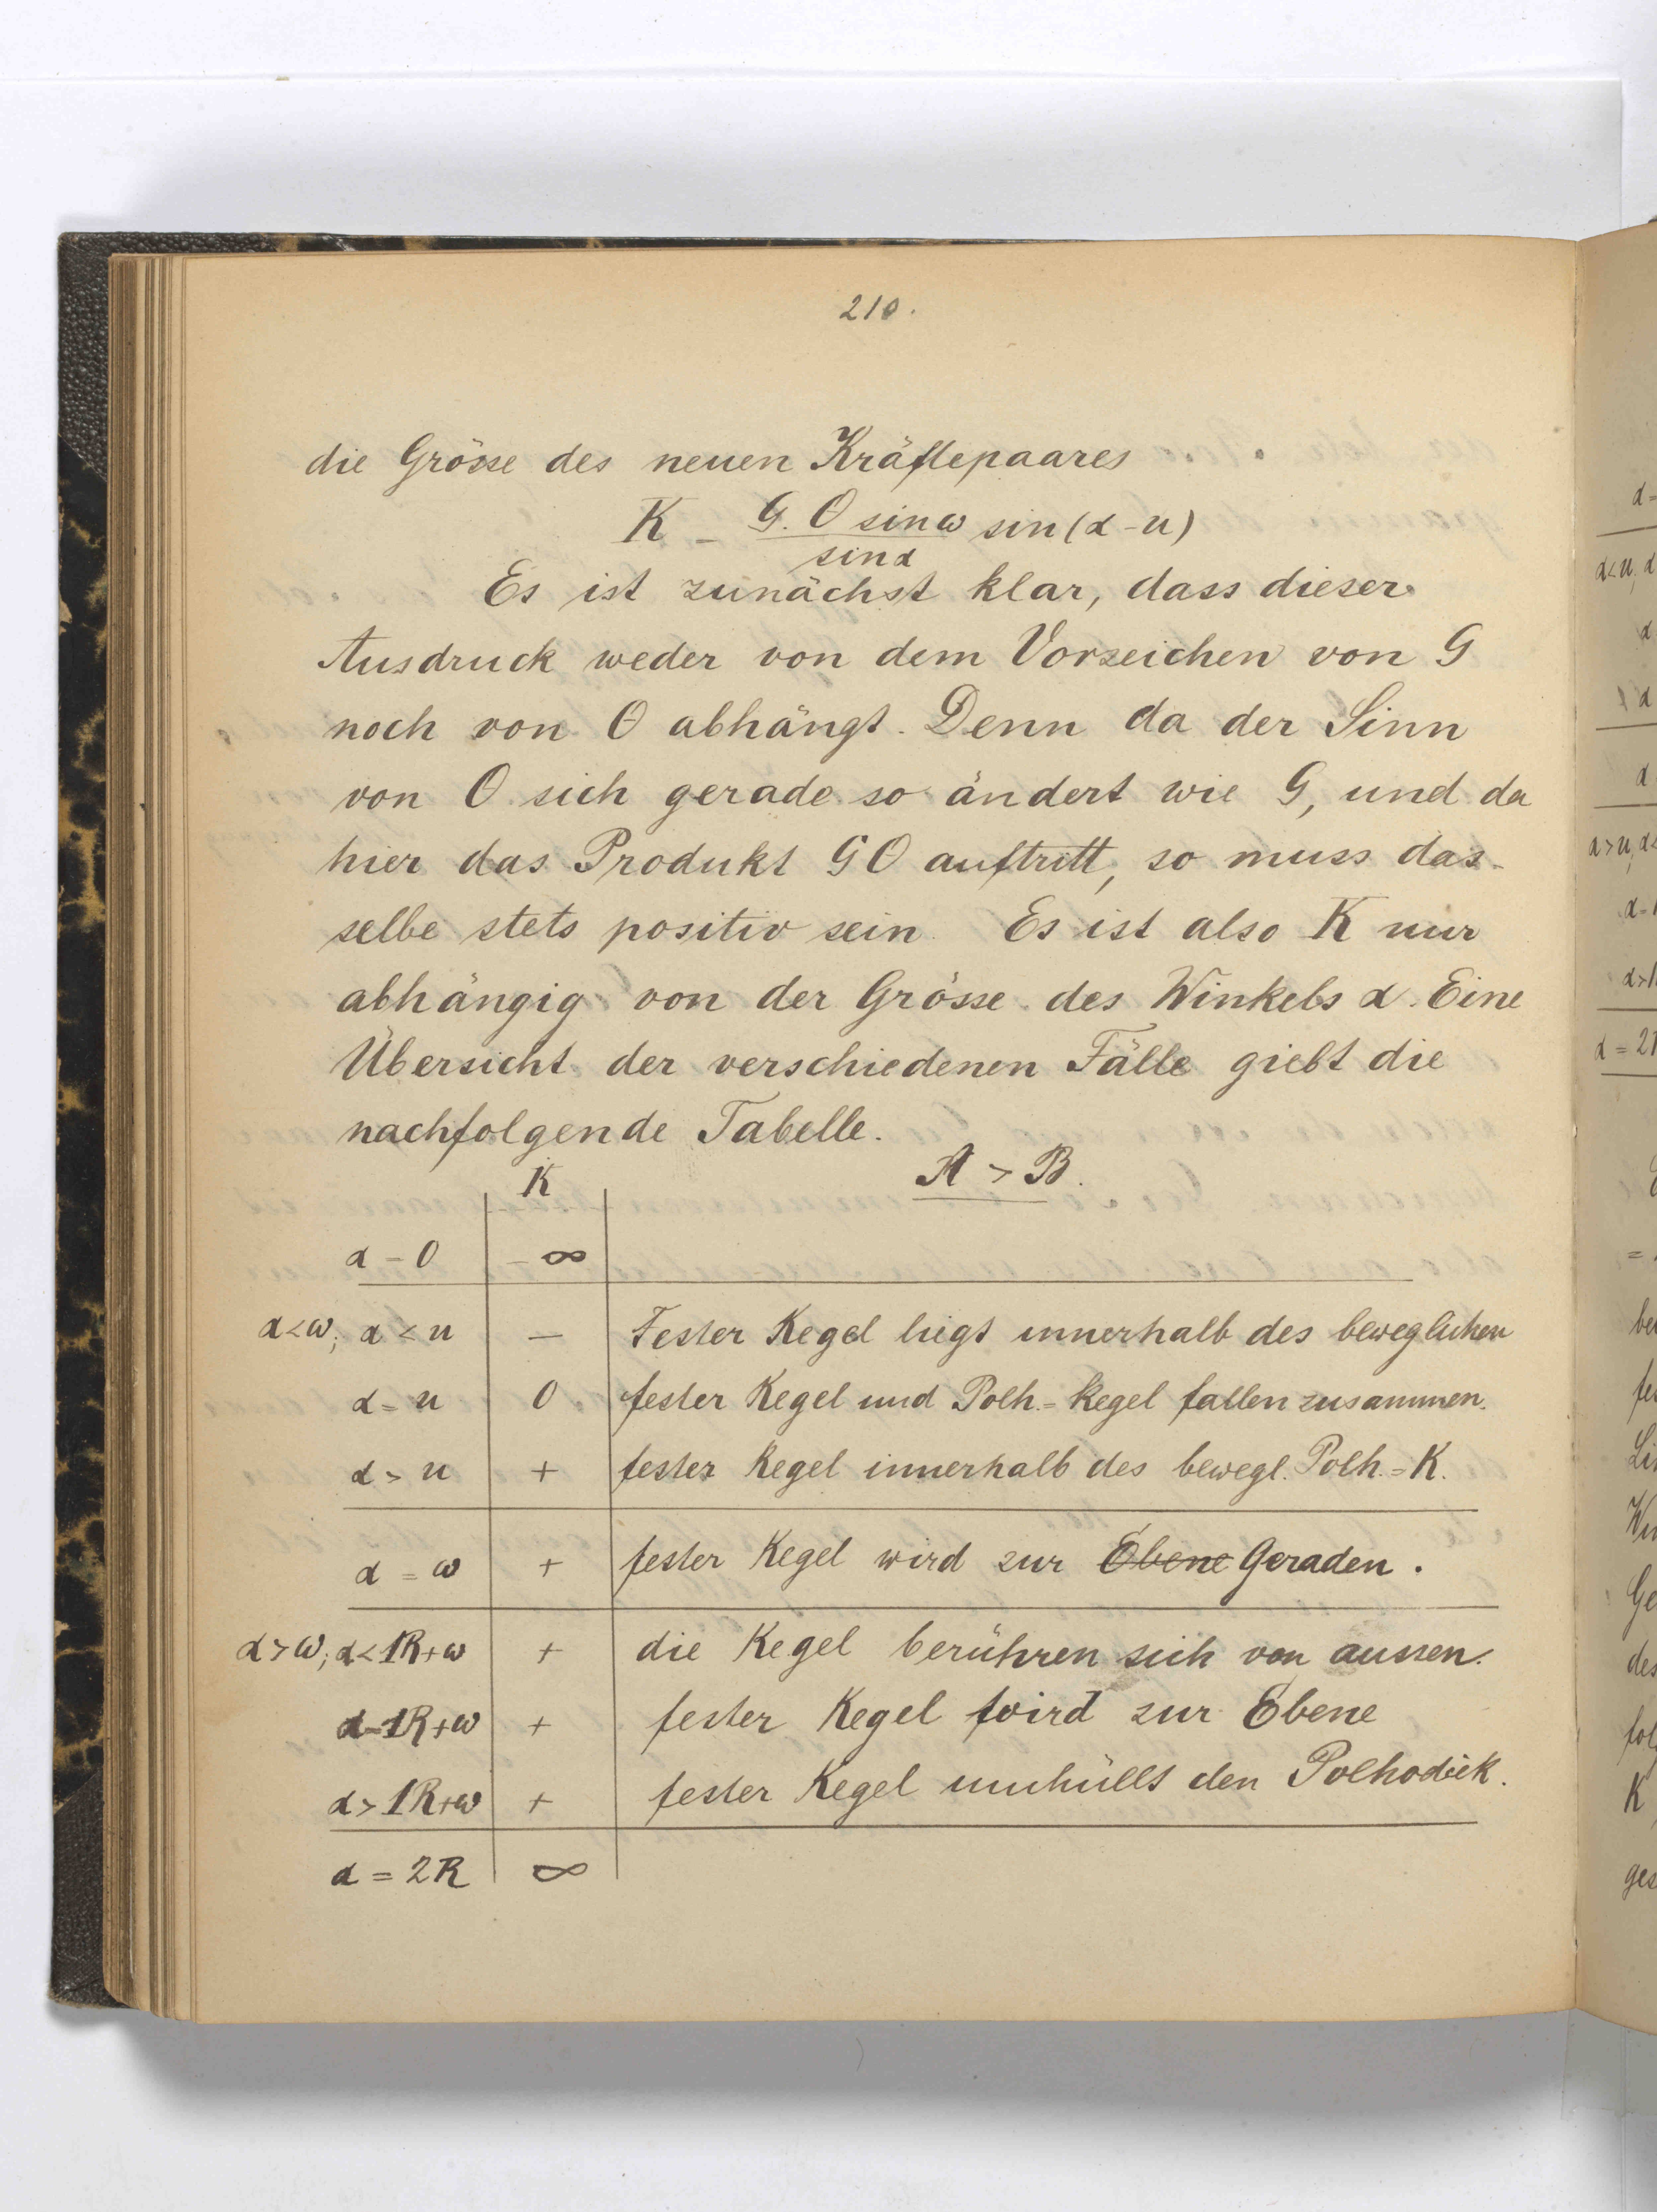 210.
die Grösse des neuen Kräftepaares
K = G. O sin ω / sin α sin (α - u)
Es ist zunächst klar, dass dieser
Ausdruck weder von dem Vorzeichen von G
noch von O abhängt. Denn da der Sinn
von O sich gerade so ändert wie G, und da
hier das Produkt GO auftritt, so muss das-
selbe stets positiv sein. Es ist also K nur
abhängig von der Grösse des Winkels α. Eine
Übersicht der verschiedenen Fälle giebt die
nachfolgende Tabelle.
K A > B.
α = 0 - ∞
α < ω; α < u — Fester Kegel liegt innerhalb des beweglichen
α = u 0 fester Kegel und Polh.= Kegel fallen zusammen.
α > u + fester Kegel innerhalb des bewegl. Polh.= K.
α = ω + fester Kegel wird zur Ebene Geraden.
α > ω; α < 1R+ω + die Kegel berühren sich von aussen.
α = 1R+ω + fester Kegel wird zur Ebene
α > 1R+ω + fester Kegel umhüllt den Polhodiek.
α = 2R ∞
α =
α < u, α
α
α
α
α > u, α <
α = 1
α > 1
α = 2R